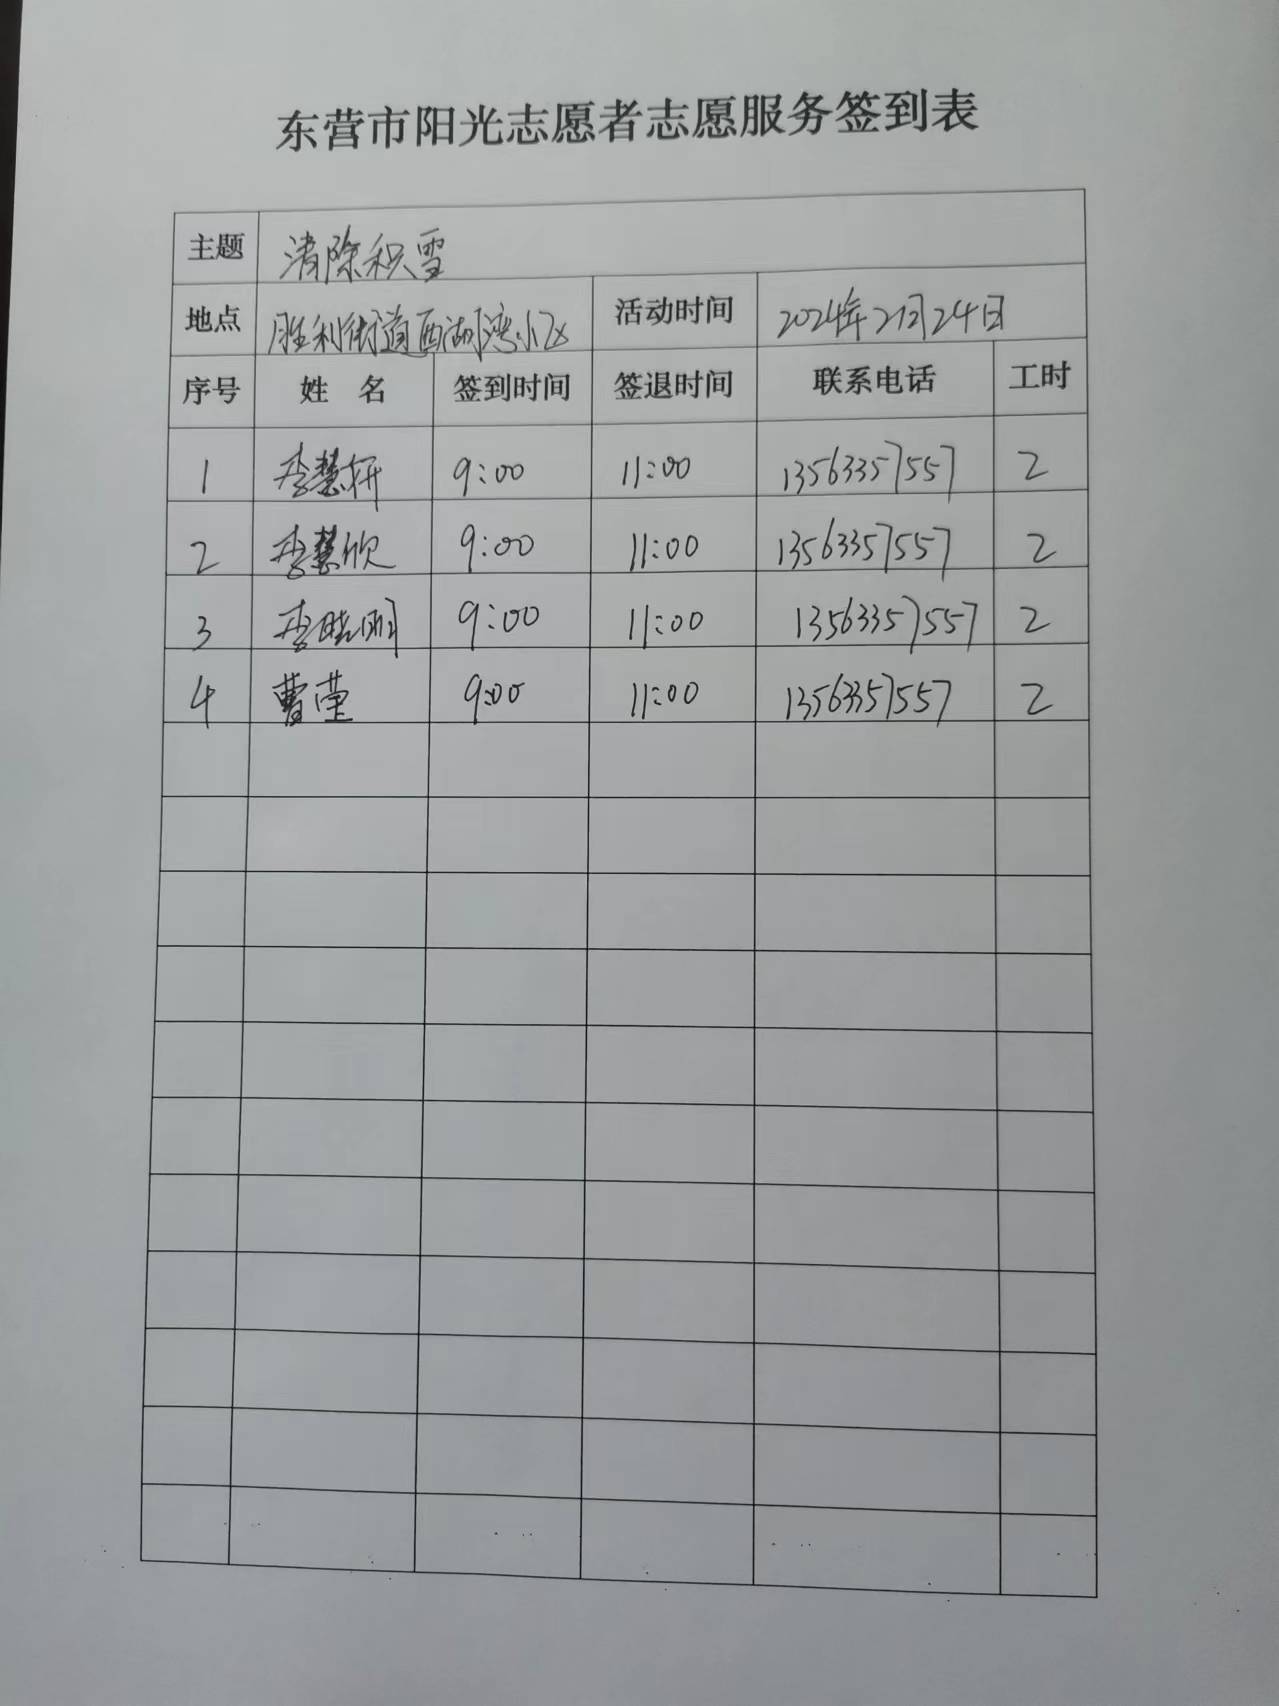 东营市阳光志愿者志愿服务签到表
主题 清除积雪
地点 胜利街道西湖湾小区 活动时间 2024年2月24日
序号 姓名 签到时间 签退时间 联系电话 工时
1 李慧妍 9:00 11:00 13563357557 2
2 李慧欣 9:00 11:00 13563357557 2
3 李晓明 9:00 11:00 13563357557 2
4 曹莹 9:00 11:00 13563357557 2